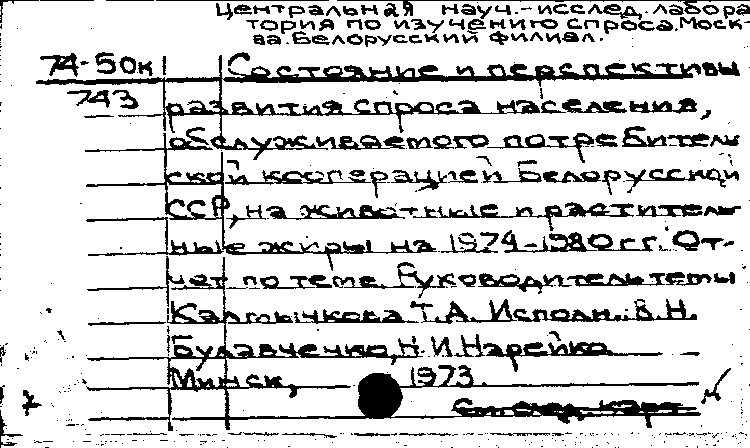 Центральная науч.-исслед. лабора
тория по изучению спроса. Моск-
ва. Белорусский филиал.
74-50к Состояние и перспективы
743 развития спроса населения,
обслуживаемого потребитель
ской кооперацией Белорусской
ССР, на животные и раститель
ные жиры на 1974-1980 гг. От-
чет по теме. Руководитель темы
Калмычкова Т.А. Исполн.: В.Н.
Булавченко, Н.И. Нарейко.
Минск, 1973.
См. след. карт.